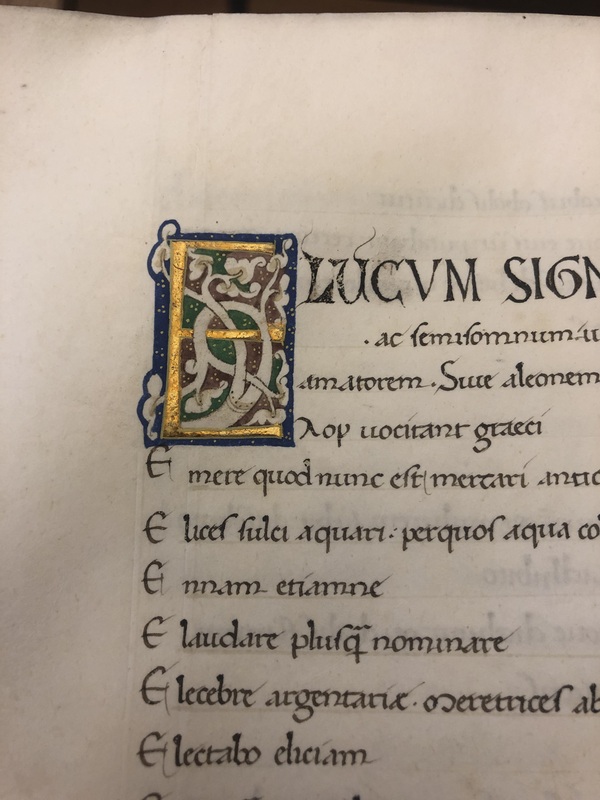 ELUCVM SIGN
· ac semisomnum u
amatorem · Siue aleonem
λοφ uocitant graeci
Emere quod nunc est mercari antiq
Elices sulci aquari · perquos aqua co
Ennam etiamne
Elaudare plusq̄ nominare
Elecebre argentariæ · Meretrices ab
Electabo eliciam